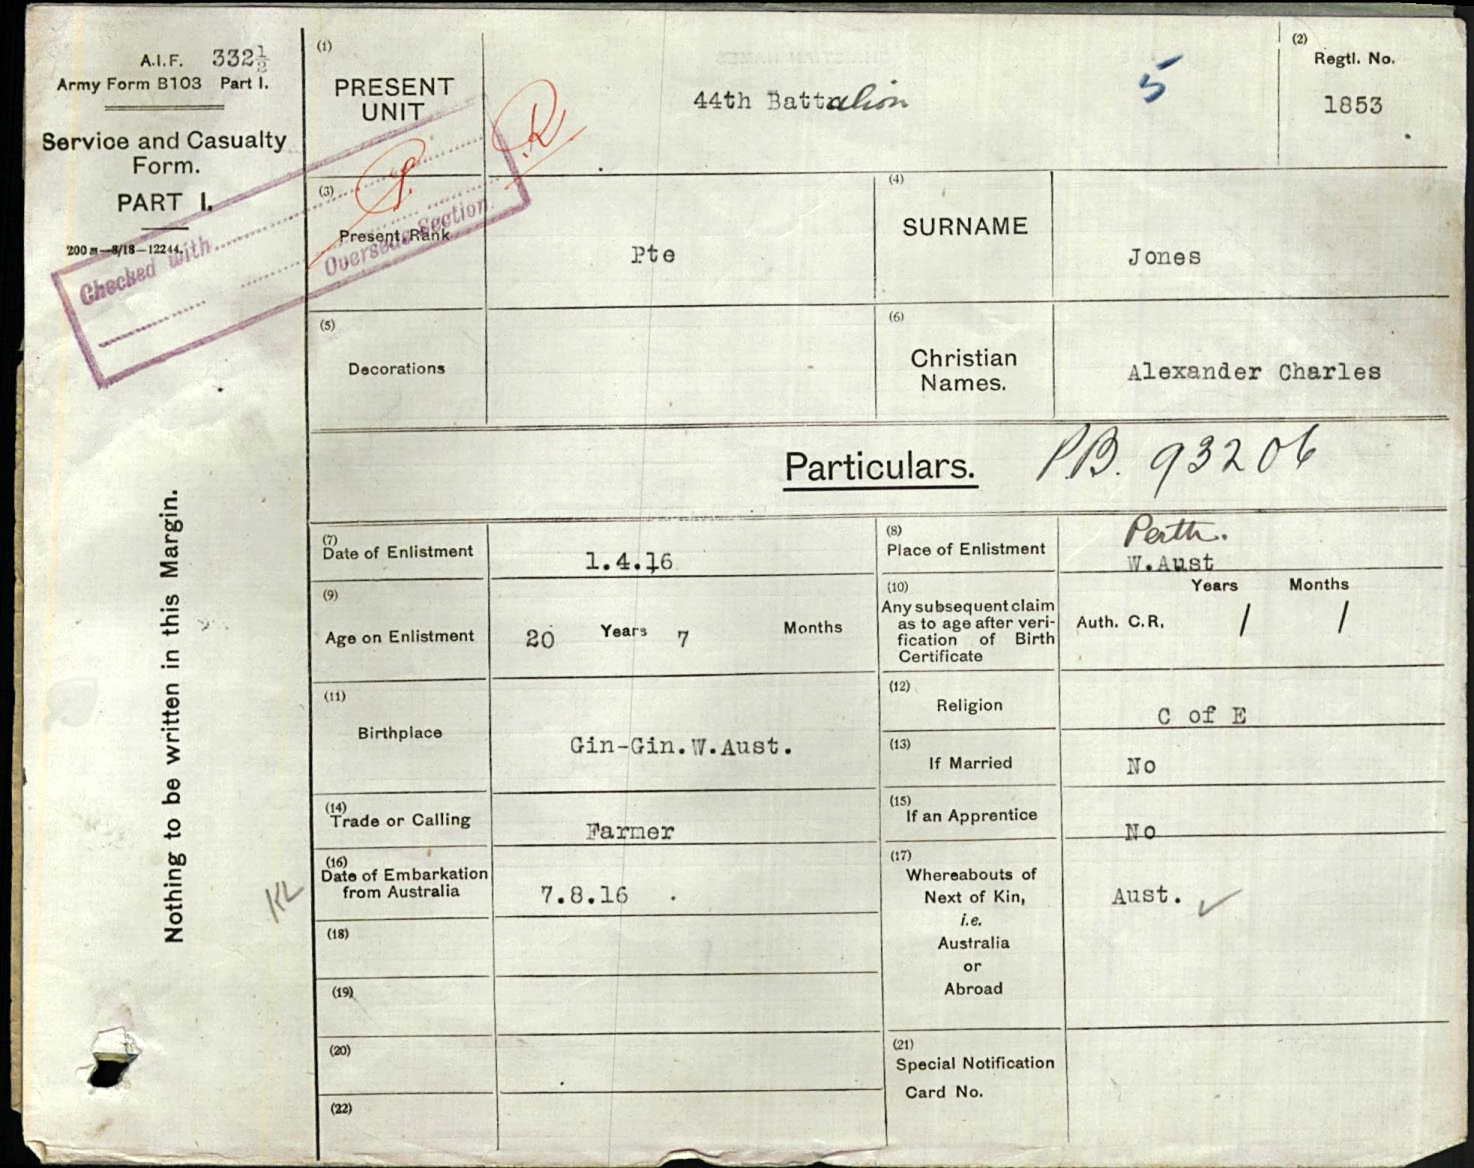 A.I.F. 332½
Army Form B103 Part I.
Service and Casualty
Form.
PART I.
200 m—8/18—12244.
Checked with
Overseas Section.
Nothing to be written in this Margin.
KL
(1)
PRESENT
UNIT
44th Battalion
5
(2)
Regtl. No.
1853
(3)
Present Rank
Pte
(4)
SURNAME
Jones
(5)
Decorations
(6)
Christian
Names.
Alexander Charles
Particulars. P.B. 93206
(7)
Date of Enlistment
1.4.16
(8)
Place of Enlistment
Perth.
W.Aust
(9)
Age on Enlistment
20 Years 7 Months
(10)
Any subsequent claim
as to age after veri-
fication of Birth
Certificate
Years Months
Auth. C.R. / /
(11)
Birthplace
Gin-Gin.W.Aust.
(12)
Religion
C of E
(13)
If Married
No
(14)
Trade or Calling
Farmer
(15)
If an Apprentice
No
(16)
Date of Embarkation
from Australia
7.8.16 .
(17)
Whereabouts of
Next of Kin,
i.e.
Australia
or
Abroad
Aust.
(18)
(19)
(20)
(21)
Special Notification
Card No.
(22)